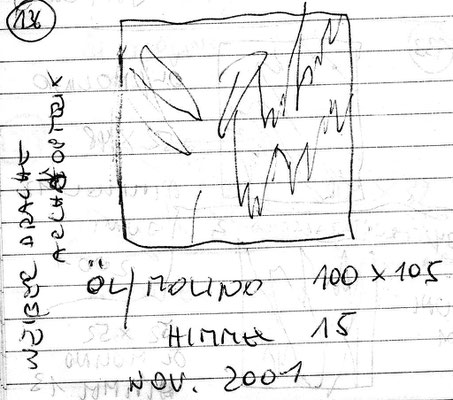 136
WEIßER DRACHE
ARCHÄOPTERIX
ÖL/MOLINO 100 x 105
HIMMEL 15
NOV. 2001